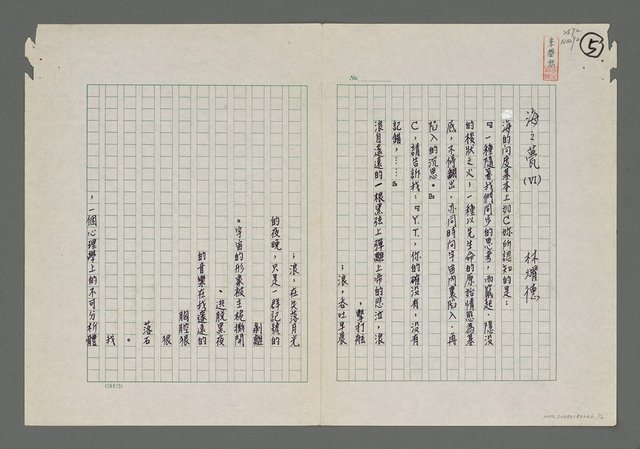 ⑤
No.
海之甍(VI)
林燿德
海的向度基本上如C妳所認知的是：
『一種隨著我們同步的思考，而竄起、隱沒
的模狀之火，一種以先生命的原始情慾為基
底，不停翻出，亦同時向宇宙內裏陷入、再
陷入的沉思。』
C，請告訴我：『Y.T.，你的確沒有，沒有
記錯，……』
浪自遙遠的一根黑弦上彈離上帝的悲泣，浪
，擊打舷
；浪，吞吐早晨
；浪，在失落月光
的夜晚，只是一群記號的
剝離
。宇宙的形象被主統撕開
，遊脫黑夜
的音樂在找遙遠的
胸腔狠
狠
落石
。
找
，一個心理學上的不可分析體